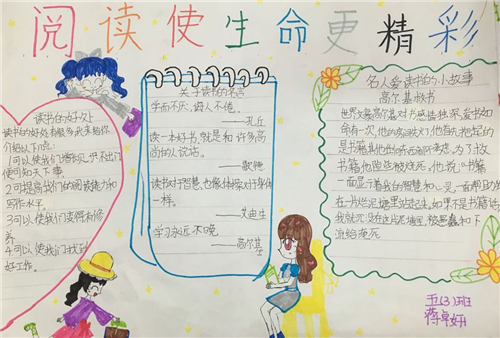 阅读使生命更精彩
读书的好处
读书的好处有很多我来给你
介绍以下几点:
1可以使我们增长见识不出门
便可知天下事
2可提高我们的阅读能力和
写作水平
3可以使我们变得有修
养
4可以使我们找到
好工作。
关于读书的名言
学而不厌、诲人不倦。
——孔丘
读一本好书,就是和许多高
尚的人谈话。
——歌德
读书对于智慧,也像体操对于身体
一样。
——艾迪生
学习永远不晚
——高尔基
名人爱读书的小故事
高尔基救书
世界文豪高尔基对书感情独深,爱书如
命有一次,他的房间失火了他首先抱起的
是书籍其他的东西
书籍他险些被烧死,他说"书籍
一面启示着我的智慧和心灵,一面帮助我
在一片烂泥塘里站起来,如果不是书籍的话,
我就沉没在这片泥塘里,被愚蠢和下
流给淹死
五(3)班
蒋卓妍